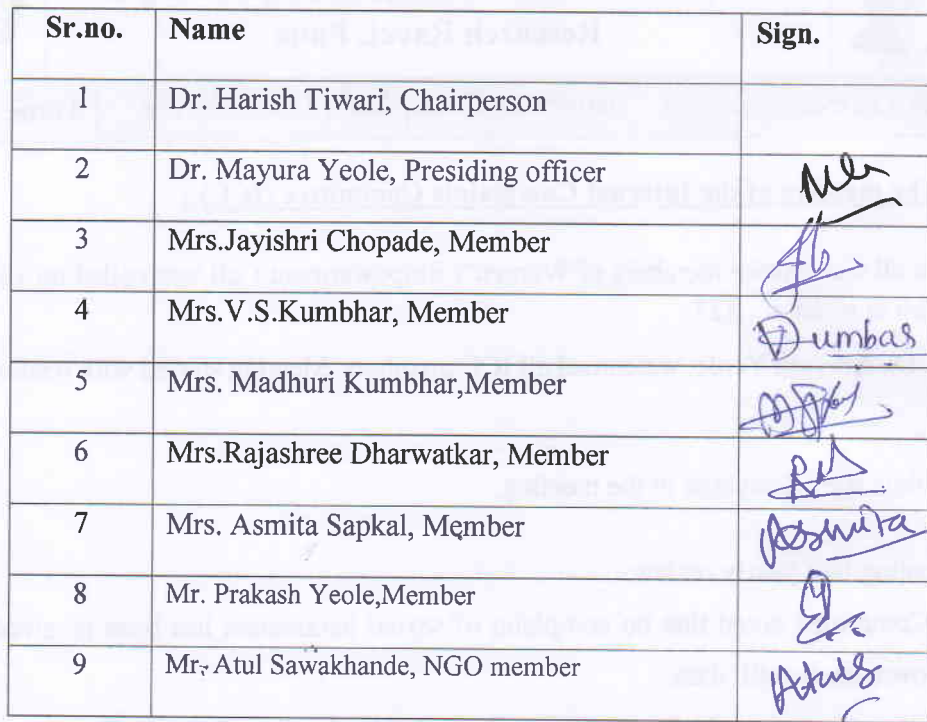 Sr.no. Name Sign.
1 Dr. Harish Tiwari, Chairperson
2 Dr. Mayura Yeole, Presiding officer
3 Mrs.Jayishri Chopade, Member
4 Mrs.V.S.Kumbhar, Member
5 Mrs. Madhuri Kumbhar,Member
6 Mrs.Rajashree Dharwatkar, Member
7 Mrs. Asmita Sapkal, Member Asmita
8 Mr. Prakash Yeole,Member
9 Mr. Atul Sawakhande, NGO member